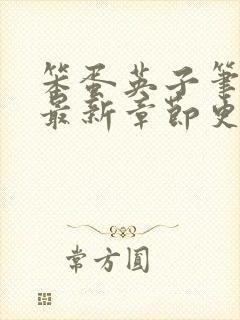 笨蛋英子笔
最新章節史
常方圆